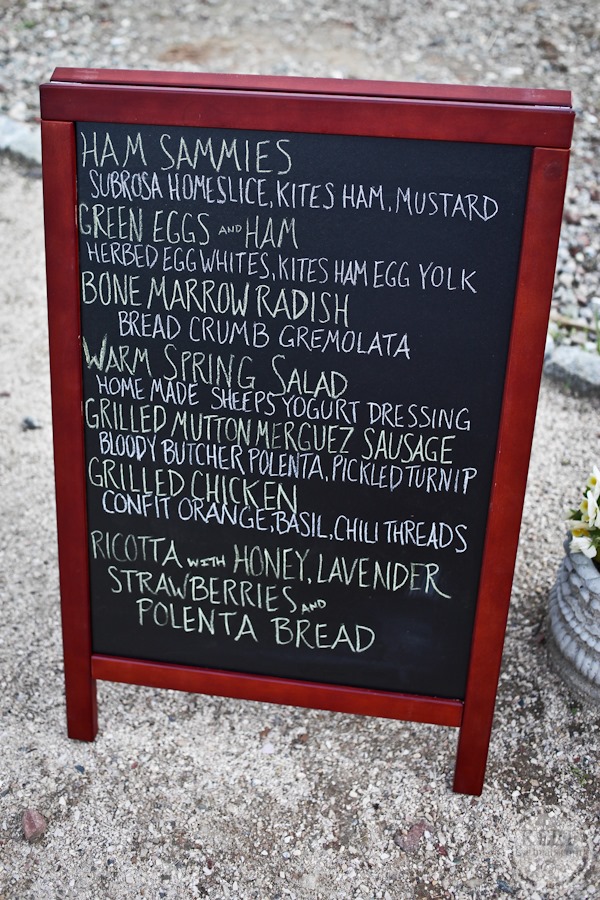 HAM SAMMIES
SUBROSA HOMESLICE, KITES HAM, MUSTARD
GREEN EGGS AND HAM
HERBED EGG WHITES, KITES HAM EGG YOLK
BONE MARROW RADISH
BREAD CRUMB GREMOLATA
WARM SPRING SALAD
HOME MADE SHEEPS YOGURT DRESSING
GRILLED MUTTON MERGUEZ SAUSAGE
BLOODY BUTCHER POLENTA, PICKLED TURNIP
GRILLED CHICKEN
CONFIT ORANGE, BASIL, CHILI THREADS
RICOTTA WITH HONEY, LAVENDER
STRAWBERRIES AND
POLENTA BREAD